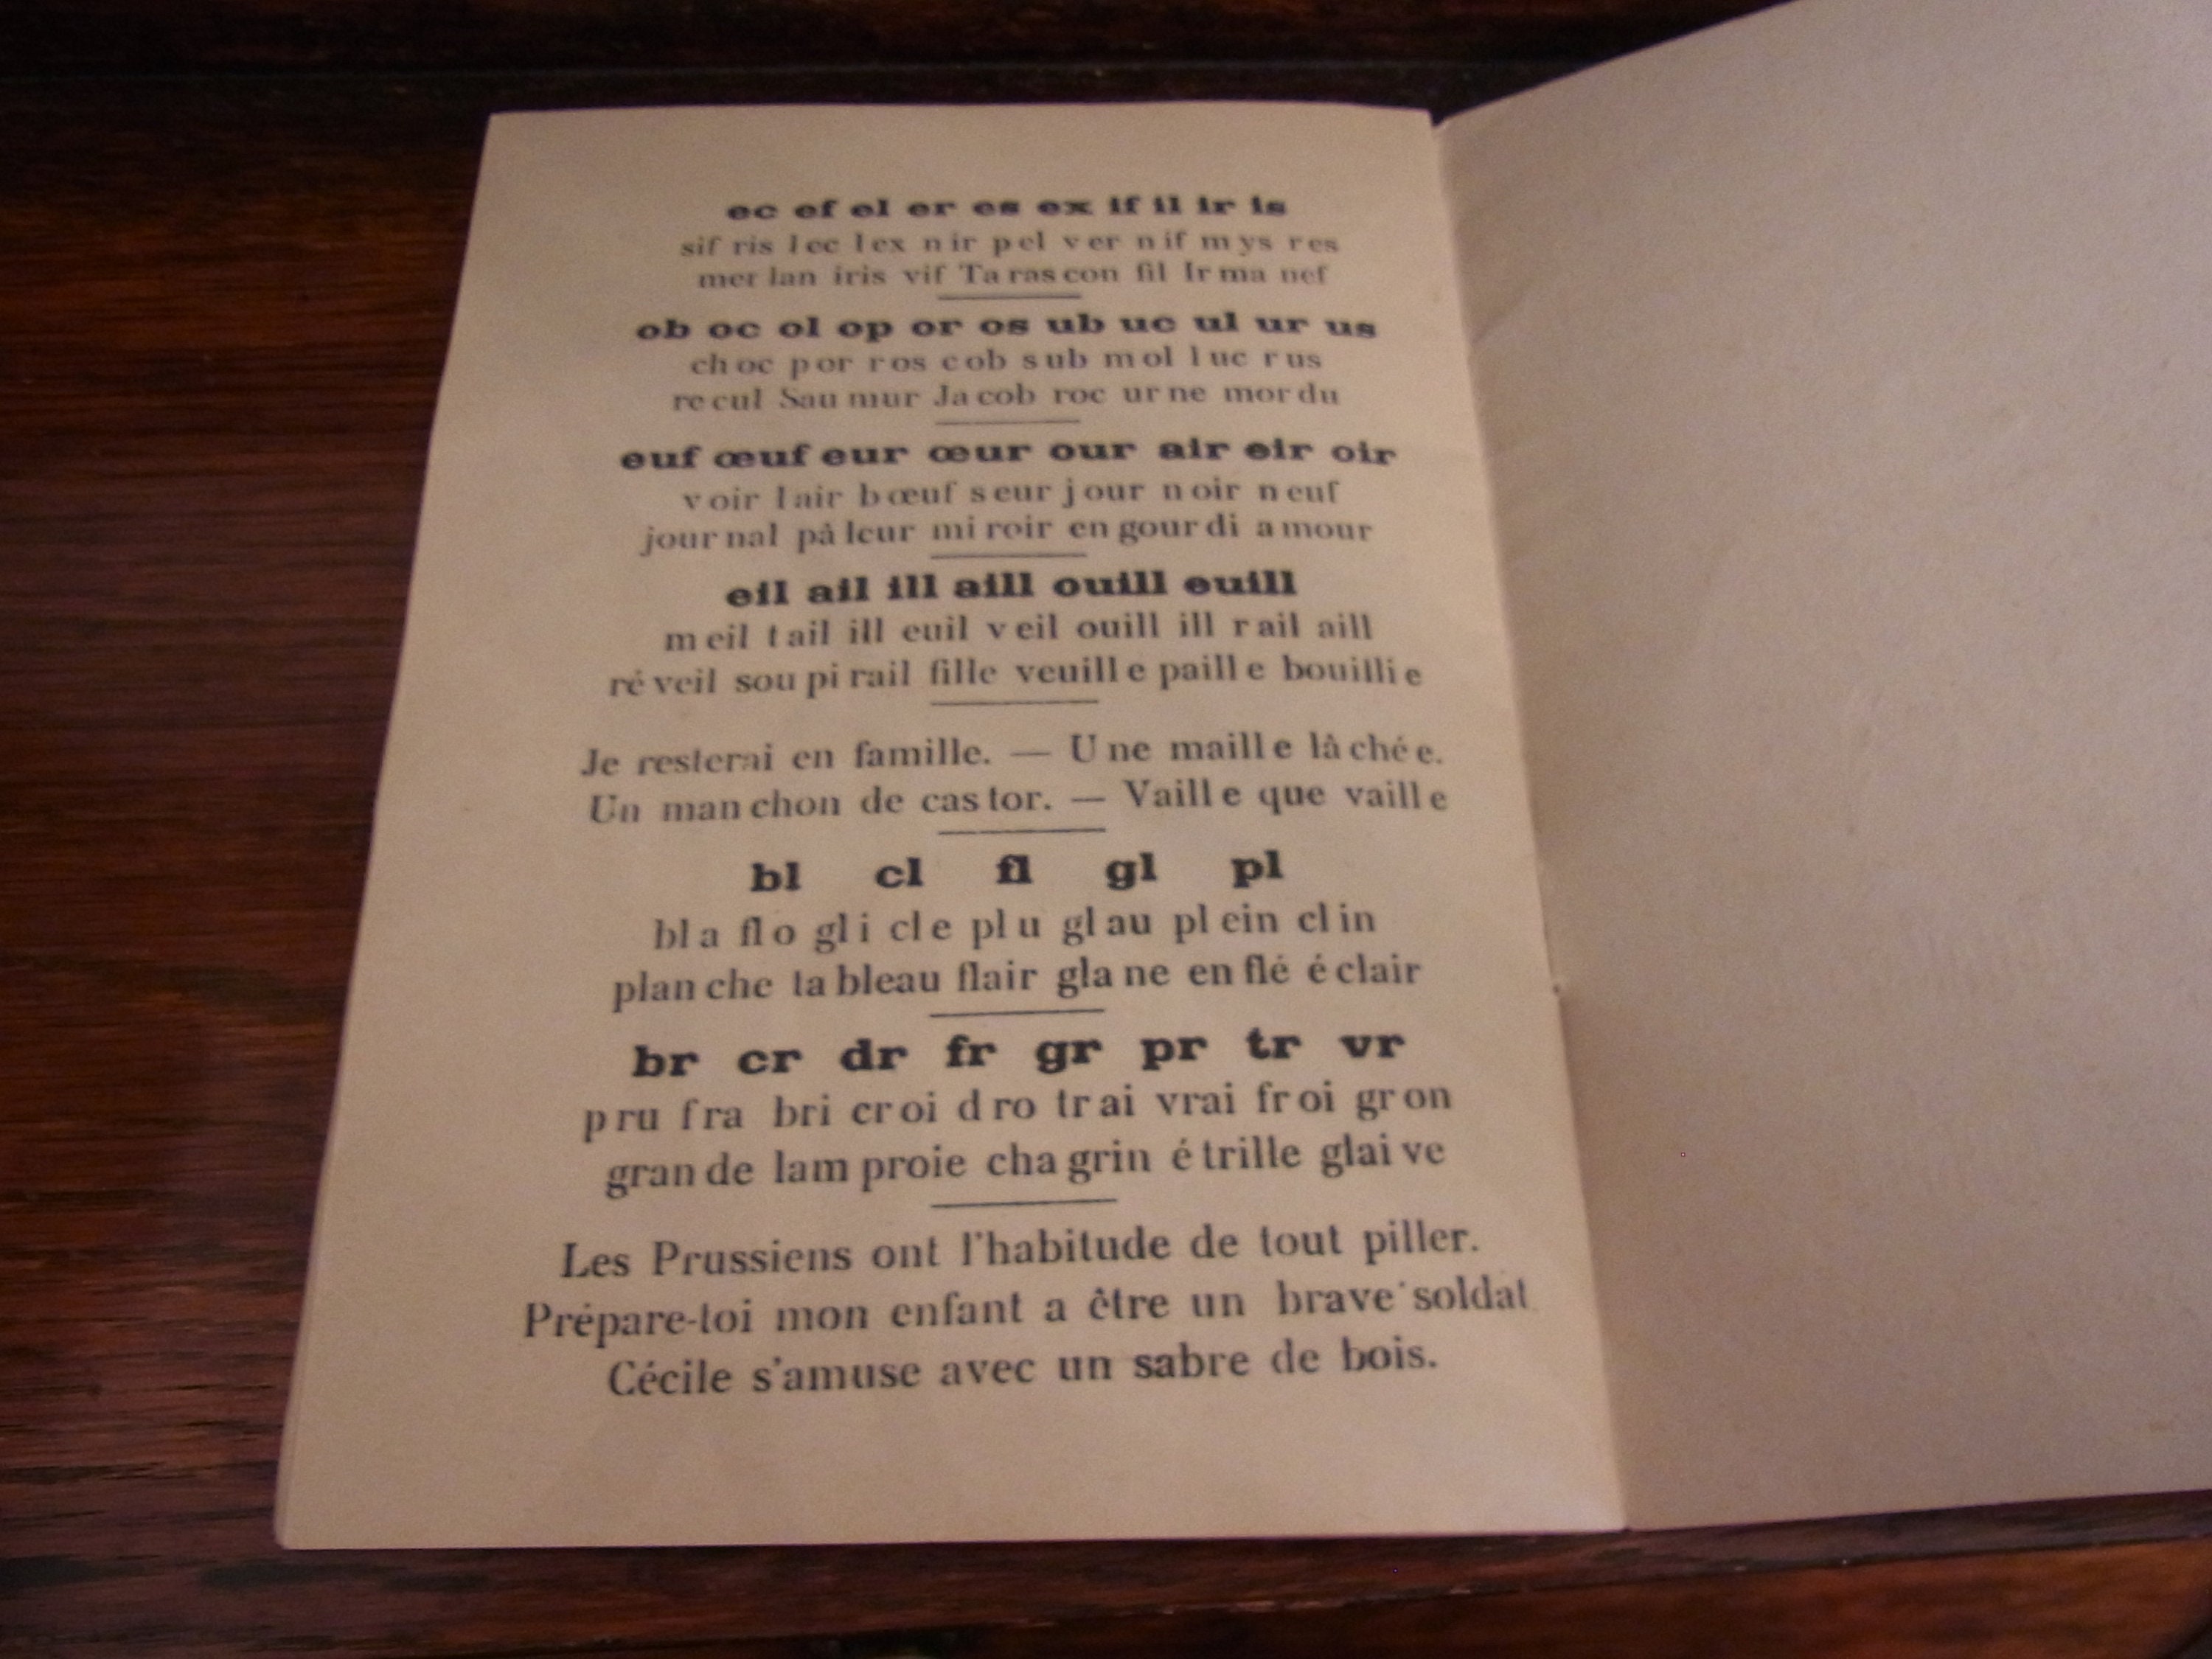 ec ef el er es ex if il ir is
sif ris lec lex nir pel ver nif mys res
mer lan iris vif Ta ras con fil Ir ma nef
ob oc ol op or os ub uc ul ur us
ch oc p or r os c ob s ub m ol l uc r us
re cul Sau mur Ja cob roc ur ne mor du
euf œuf eur œur our air eir oir
v oir l air b œuf s eur j our n oir n euf
jour nal pâ leur mi roir en gour di a mour
eil ail ill aill ouill euill
m eil t ail ill euil v eil ouill ill r ail aill
ré veil sou pi rail fille veuill e paill e bouilli e
Je resterai en famille. — U ne maill e lâ ché e.
Un man chon de cas tor. — Vaill e que vaill e
bl cl fl gl pl
bl a fl o gl i cl e pl u gl au pl ein cl in
plan che ta bleau flair gla ne en flé é clair
br cr dr fr gr pr tr vr
p ru f ra bri cr oi d ro tr ai vrai fr oi gr on
gran de lam proie cha grin é trille glai ve
Les Prussiens ont l'habitude de tout piller.
Prépare-toi mon enfant a être un brave soldat
Cécile s'amuse avec un sabre de bois.